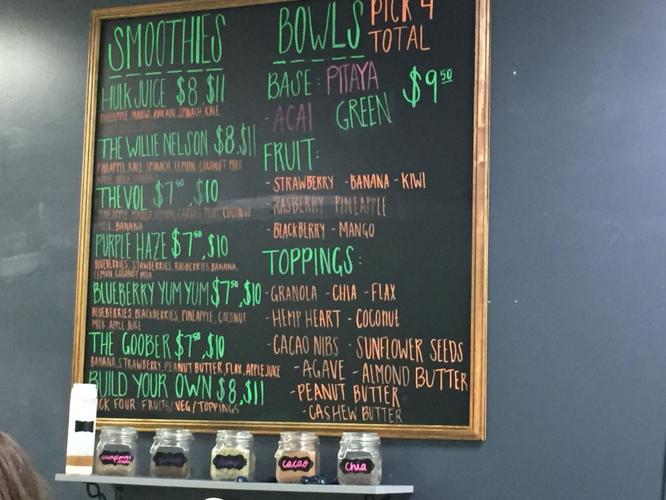 SMOOTHIES
HULK JUICE $8, $11
PINEAPPLE, MANGO, AVOCADO, SPINACH, KALE
THE WILLIE NELSON $8, $11
PINEAPPLE, KALE, SPINACH, LEMON, COCONUT MILK
APPLE JUICE
THE VOL $7⁵⁰, $10
PINEAPPLE, MANGO, LEMON, COCONUT
MILK, BANANA
PURPLE HAZE $7⁵⁰, $10
BLUEBERRIES, STAWBERRIES, RASBERRIES, BANANA,
LEMON, COCONUT MILK
BLUEBERRY YUM YUM $7⁵⁰, $10
BLUEBERRIES, BLACKBERRIES, PINEAPPLE, COCONUT
MILK, APPLE JUICE
THE GOOBER $7⁵⁰, $10
BANANA, STRAWBERRY, PEANUT BUTTER, FLAX, APPLE JUICE
BUILD YOUR OWN $8, $11
PICK FOUR FRUITS/VEG/TOPPINGS
BOWLS PICK 4
TOTAL
BASE: PITAYA $9⁵⁰
- ACAI GREEN
FRUIT:
- STRAWBERRY - BANANA - KIWI
- RASBERRY PINEAPPLE
- BLACKBERRY - MANGO
TOPPINGS:
- GRANOLA - CHIA - FLAX
- HEMP HEART - COCONUT
- CACAO NIBS - SUNFLOWER SEEDS
- AGAVE - ALMOND BUTTER
- PEANUT BUTTER
- CASHEW BUTTER
cacao
chia